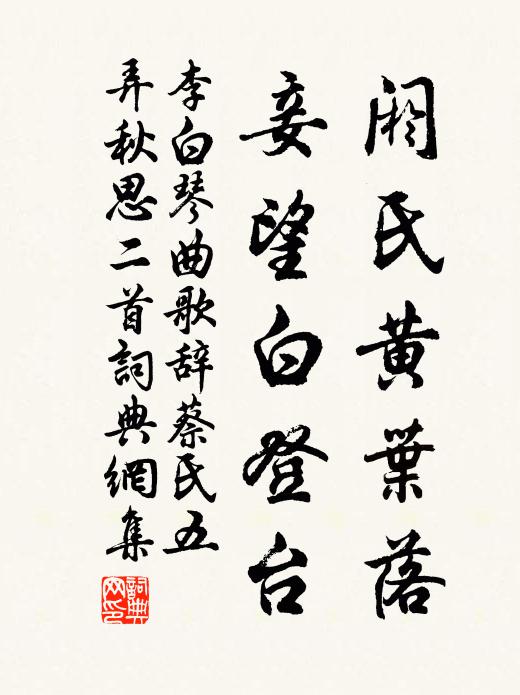 閼氏黃葉落
妾望白登台
李白琴曲歌辞蔡氏五
弄秋思二首詞典網集
詞典
网印